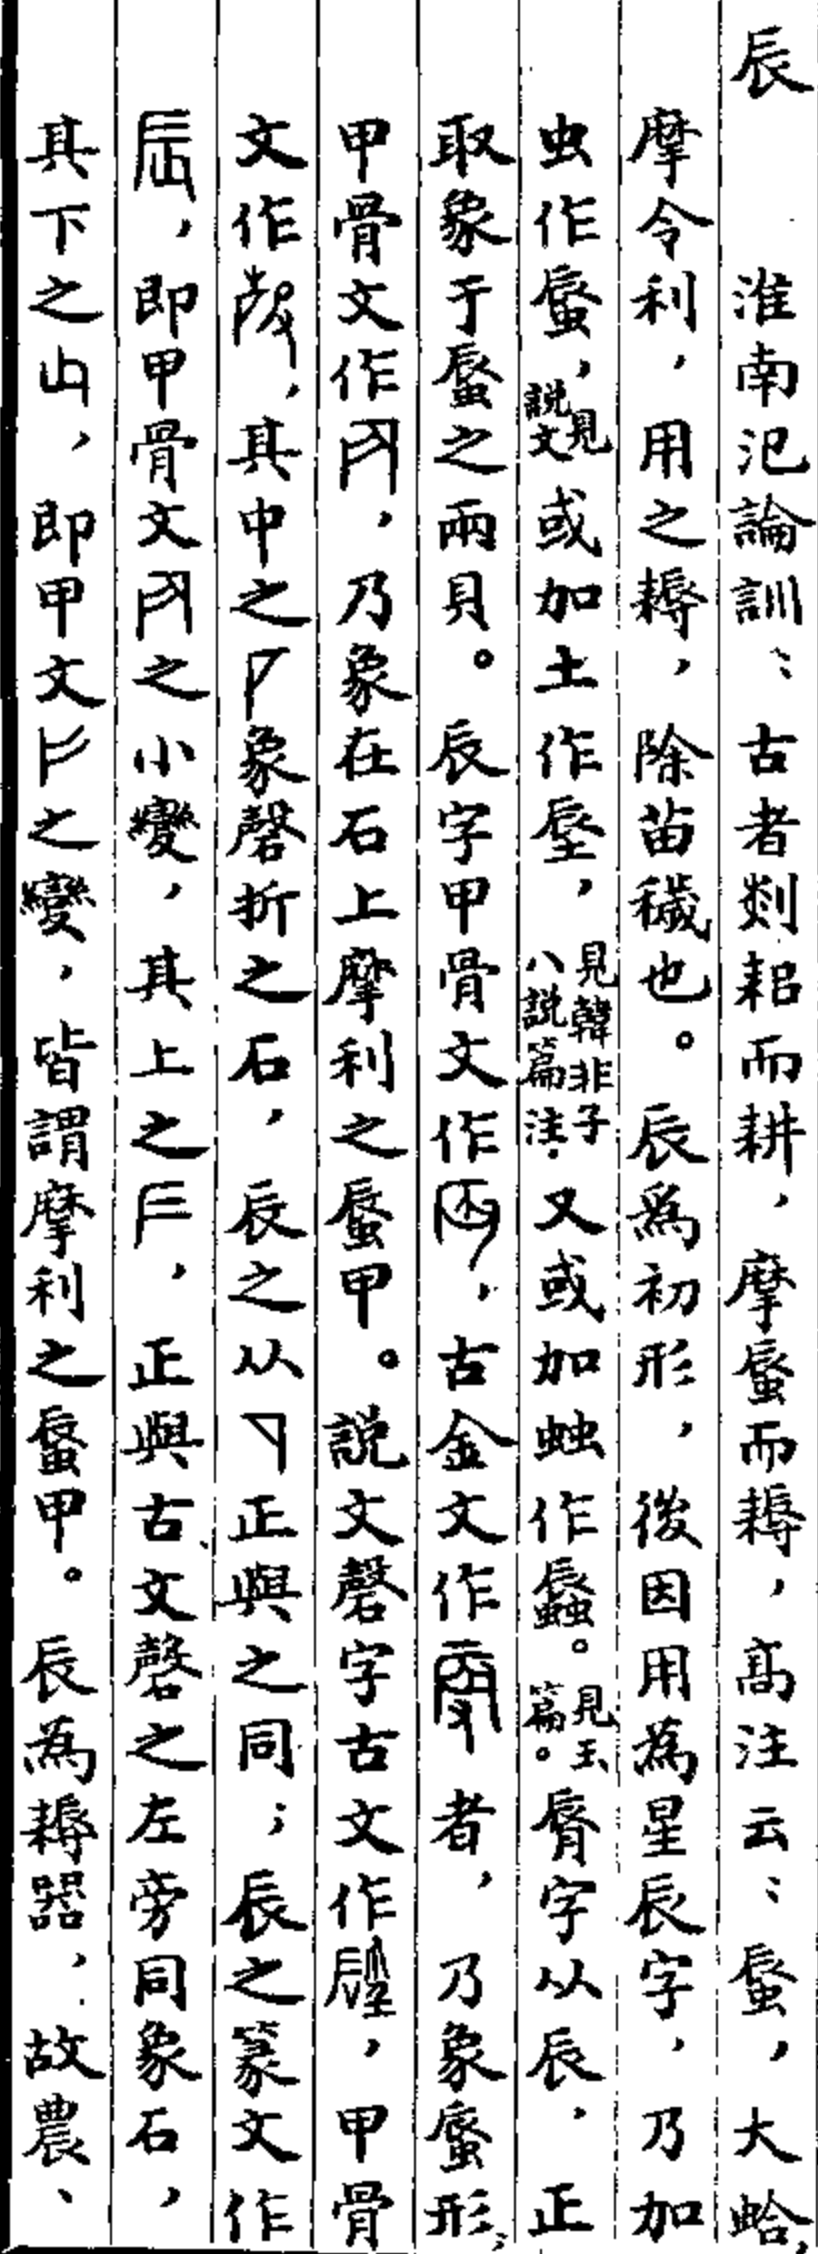 辰　淮南氾論訓：古者剡耜而耕，摩蜃而耨，高注云：蜃，大蛤，
摩令利，用之耨，除苗穢也。辰爲初形，後因用爲星辰字，乃加
虫作蜃，見說文或加土作㖘，見韓非子八說篇注．又或加䖵作蜄。見玉篇。脣字从辰，正
取象于蜃之兩貝。辰字甲骨文作，古金文作者，乃象蜃形，
甲骨文作，乃象在石上摩利之蜃甲。說文磬字古文作，甲骨
文作，其中之象磬折之石，辰之从正與之同；辰之篆文作
，即甲骨文之小變，其上之，正與古文磬之左旁同象石，
其下之，即甲文之變，皆謂摩利之蜃甲。辰爲耨器，故農、